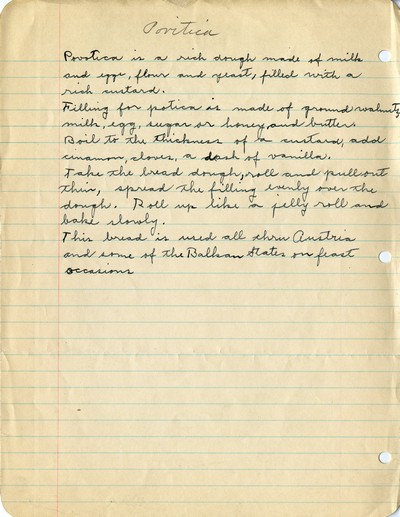 Povitica
Povotica is a rich dough made of milk
and eggs, flour and yeast, filled with a
rich custard.
Filling for potica is made of ground walnuts,
milk, egg, sugar or honey, and butter.
Boil to the thickness of a custard, add
cinamon, cloves, a dash of vanilla.
Take the bread dough, roll and pull out
thin, spread the filling evenly over the
dough. Roll up like a jelly roll and
bake slowly.
This bread is used all thru Austria
and some of the Balkan States on feast
occasions